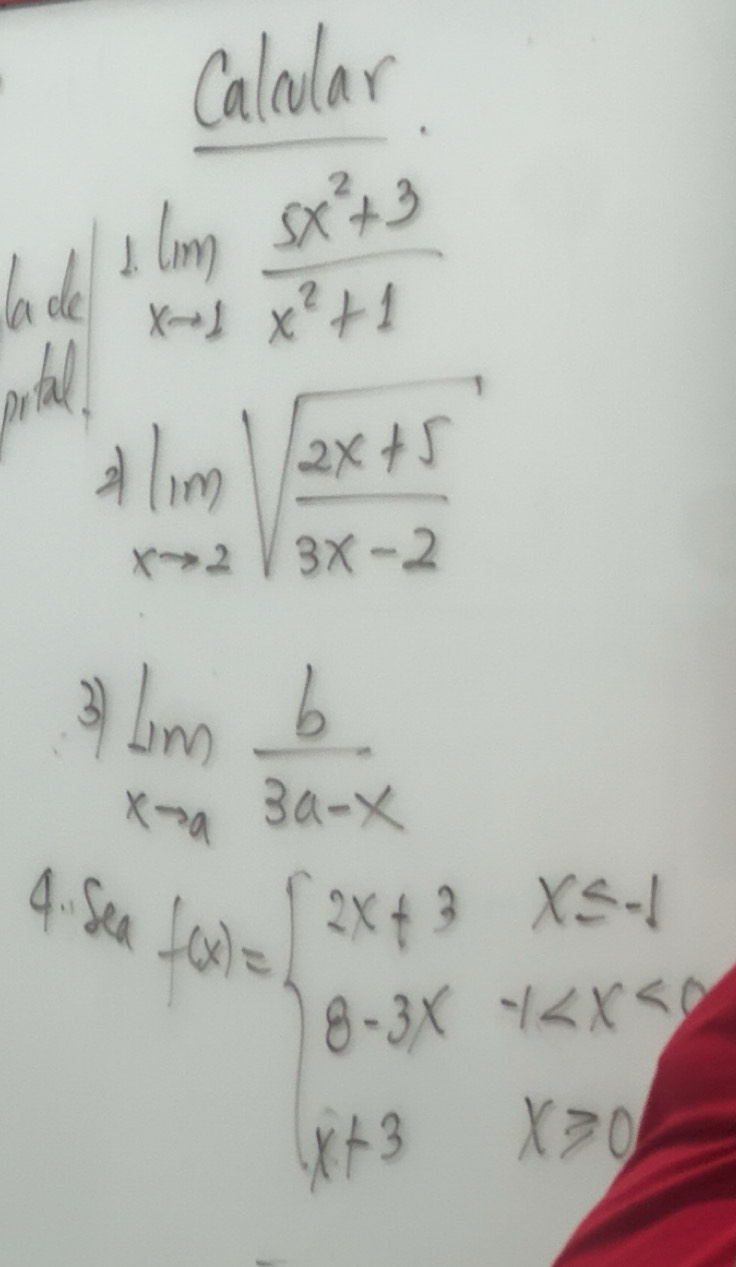 Calcular.
la de
pital.
1. lim x→1 (5x²+3)/(x²+1)
2) lim x→2 √((2x+5)/(3x-2))
3) Lim x→a b/(3a-x)
4. Sea f(x) = { 2x+3 x≤-1
8-3x -1<x<0
x+3 x≥0